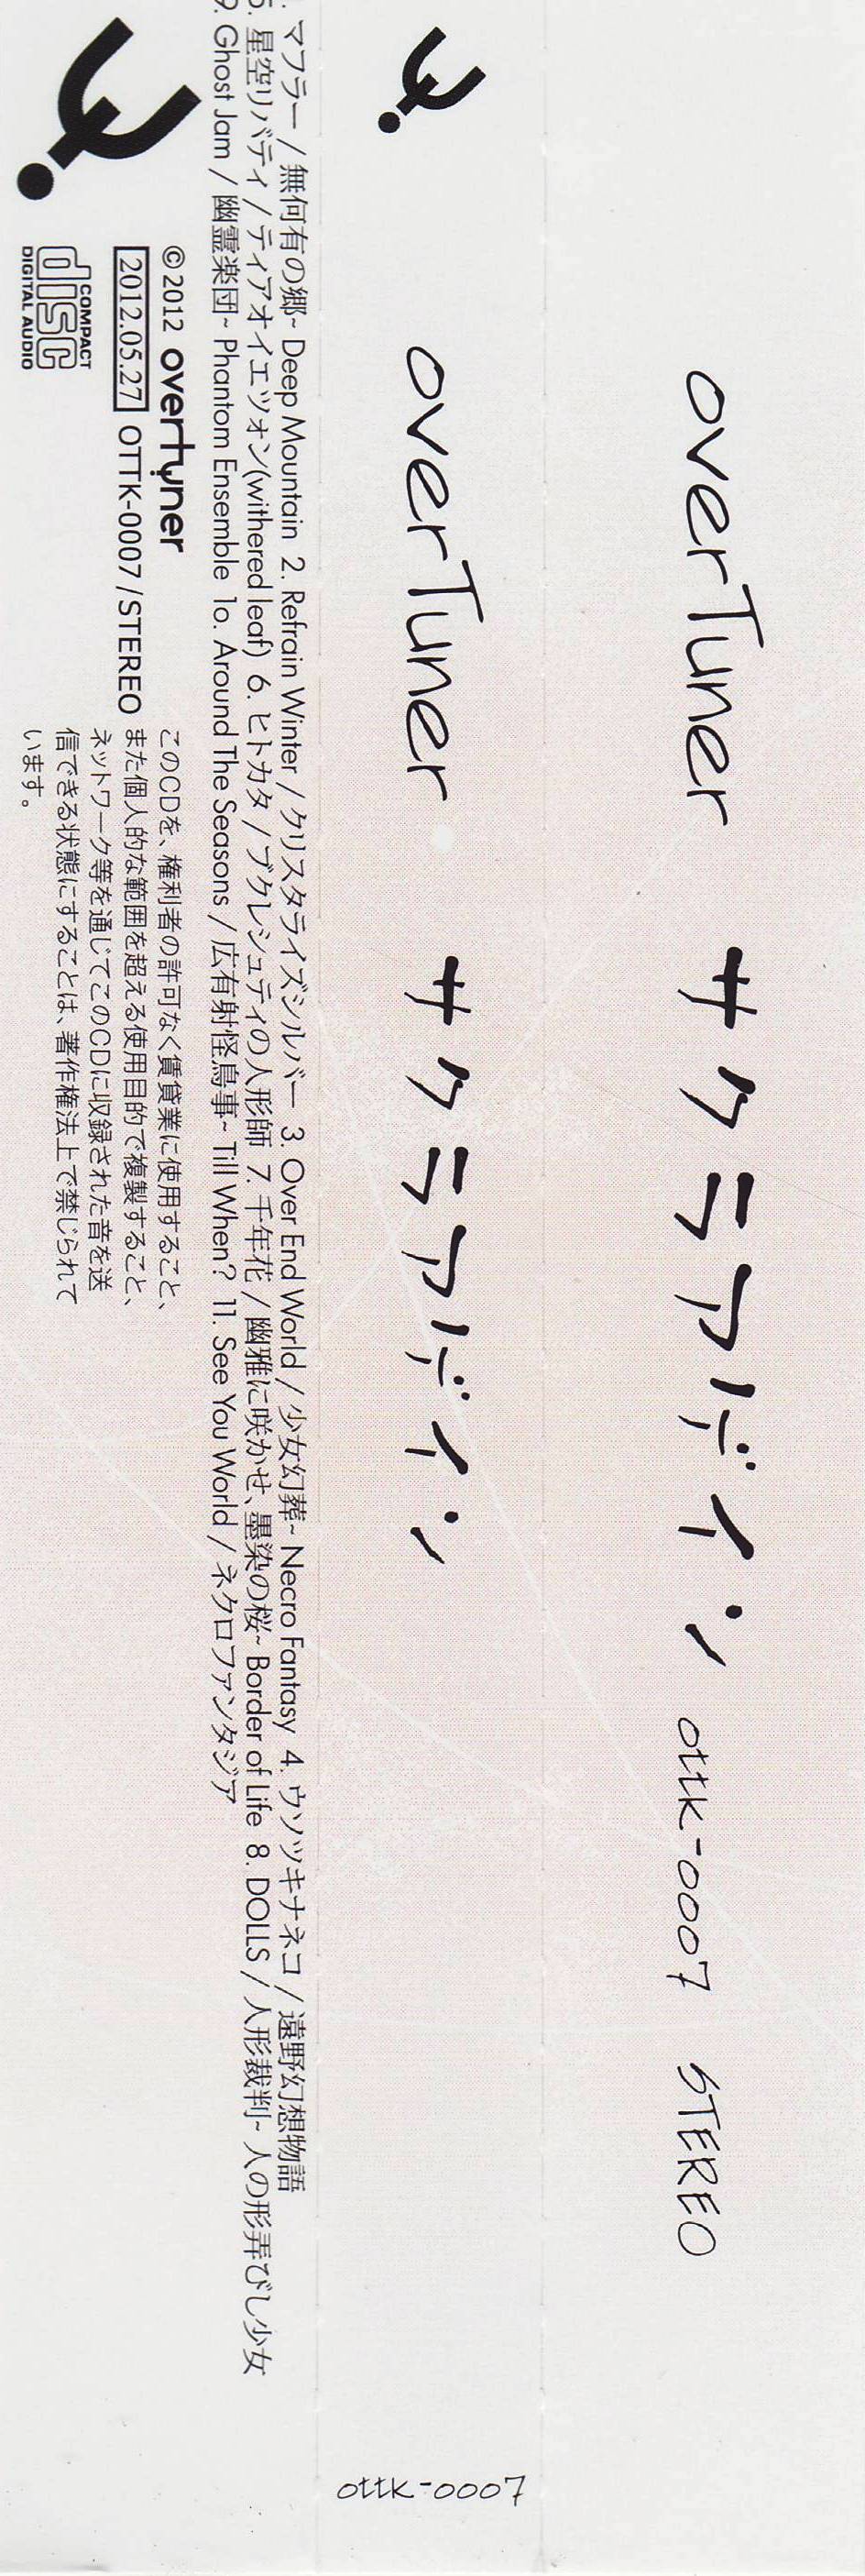 overTuner サクラカバイン ottk-0007 STEREO
overTuner サクラカバイン ottk-0007
1. マフラー / 無何有の郷~ Deep Mountain 2. Refrain Winter / クリスタライズシルバー 3. Over End World / 少女幻葬~ Necro Fantasy 4. ウソツキナネコ / 遠野幻想物語
5. 星空リバティ / ティアオイエツォン(withered leaf) 6. ヒトカタ / ブクレシュティの人形師 7. 千年花 / 幽雅に咲かせ、墨染の桜~ Border of Life 8. DOLLS / 人形裁判~ 人の形弄びし少女
9. Ghost Jam / 幽霊楽団~ Phantom Ensemble 1o. Around The Seasons / 広有射怪鳥事~ Till When? 11. See You World / ネクロファンタジア
©2012 overtuner
2012.05.27 OTTK-0007 /STEREO
COMPACT
disc
DIGITAL AUDIO
このCDを、権利者の許可なく賃貸業に使用すること、
また個人的な範囲を超える使用目的で複製すること、
ネットワーク等を通じてこのCDに収録された音を送
信できる状態にすることは、著作権法上で禁じられて
います。